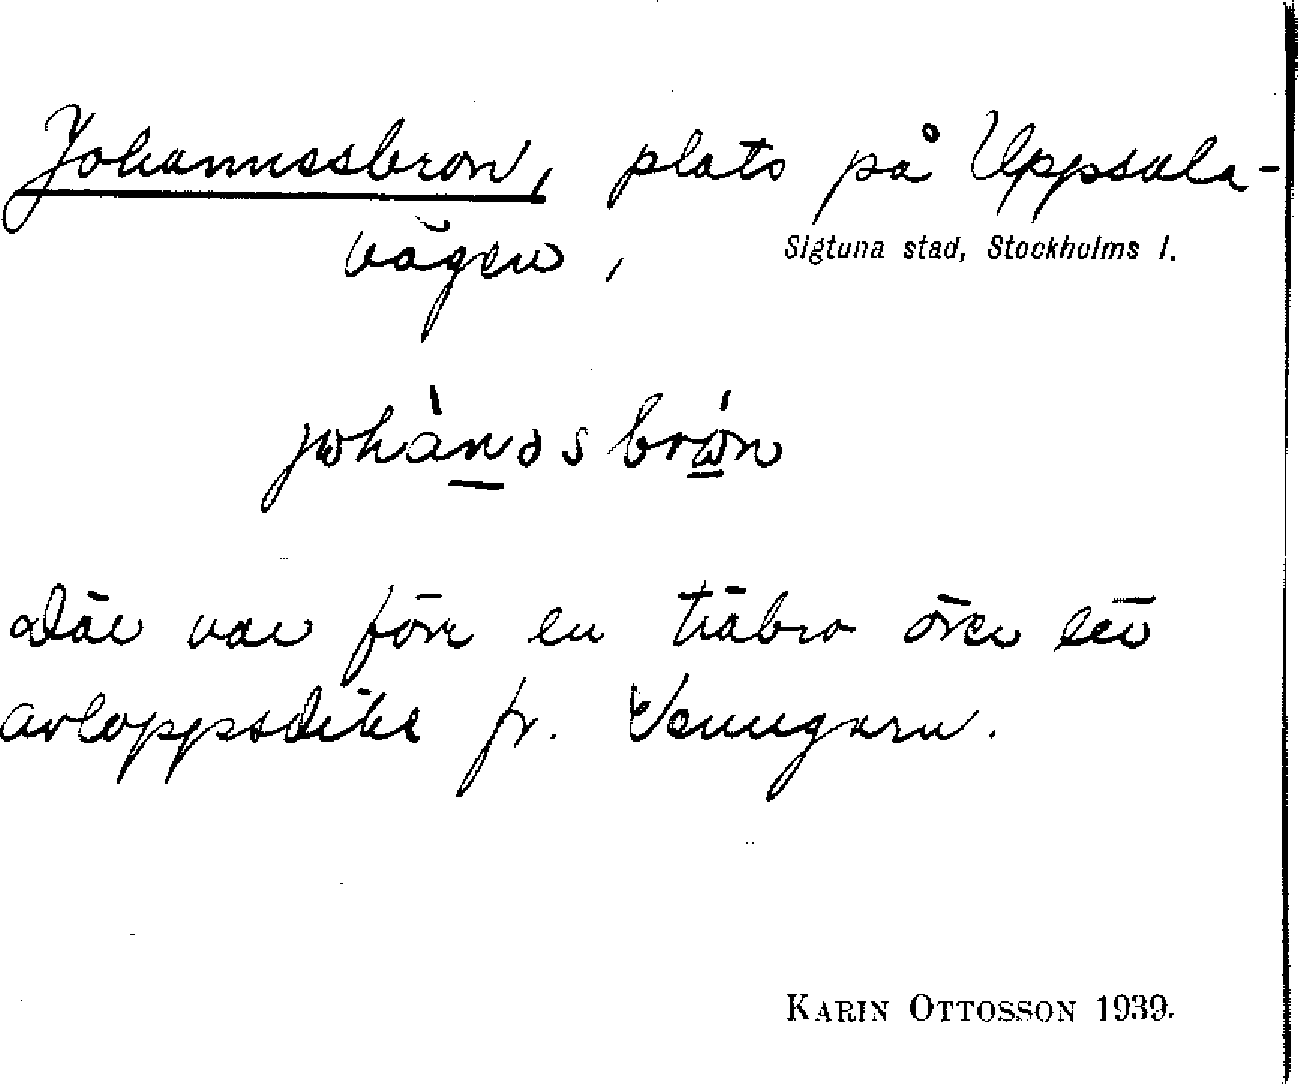 Johannesbron, plats på Uppsala-
vägen,
Sigtuna stad, Stockholms l.
johànəs brón
Där var förr en träbro över ett
avloppsdike fr. Venngarn.
KARIN OTTOSSON 1939.